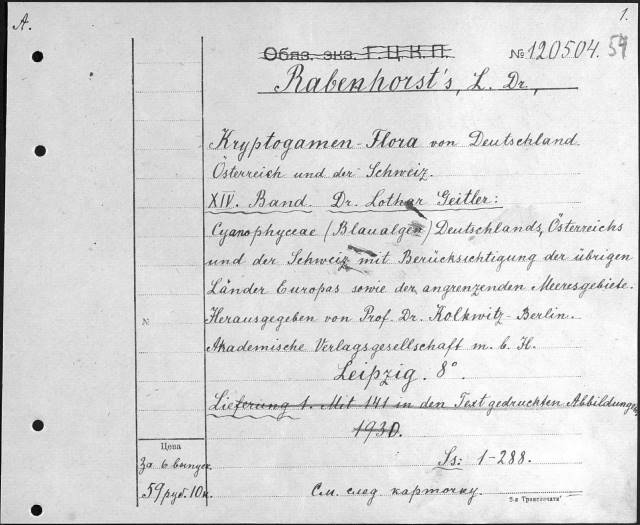 A.
1.
Обяз. экз. Г.Ц.К.П.
№ 120504. 59
Rabenhorst's, L. Dr.,
Kryptogamen-Flora von Deutschland
Österreich und der Schweiz.
XIV. Band. Dr. Lothar Geitler:
Cyanophyceae (Blaualgen) Deutschlands, Österreichs
und der Schweiz mit Berücksichtigung der übrigen
Länder Europas sowie der angrenzenden Meeresgebiete.
№
Herausgegeben von Prof. Dr. Kolkwitz-Berlin.
Akademische Verlagsgesellschaft m. b. H.
Leipzig. 8°.
Lieferung 1. Mit 141 in den Text gedruckten Abbildungen
1930.
Цена
За 6 выпуск.
59 руб. 10 к.
Ss: 1-288.
См. след карточку.